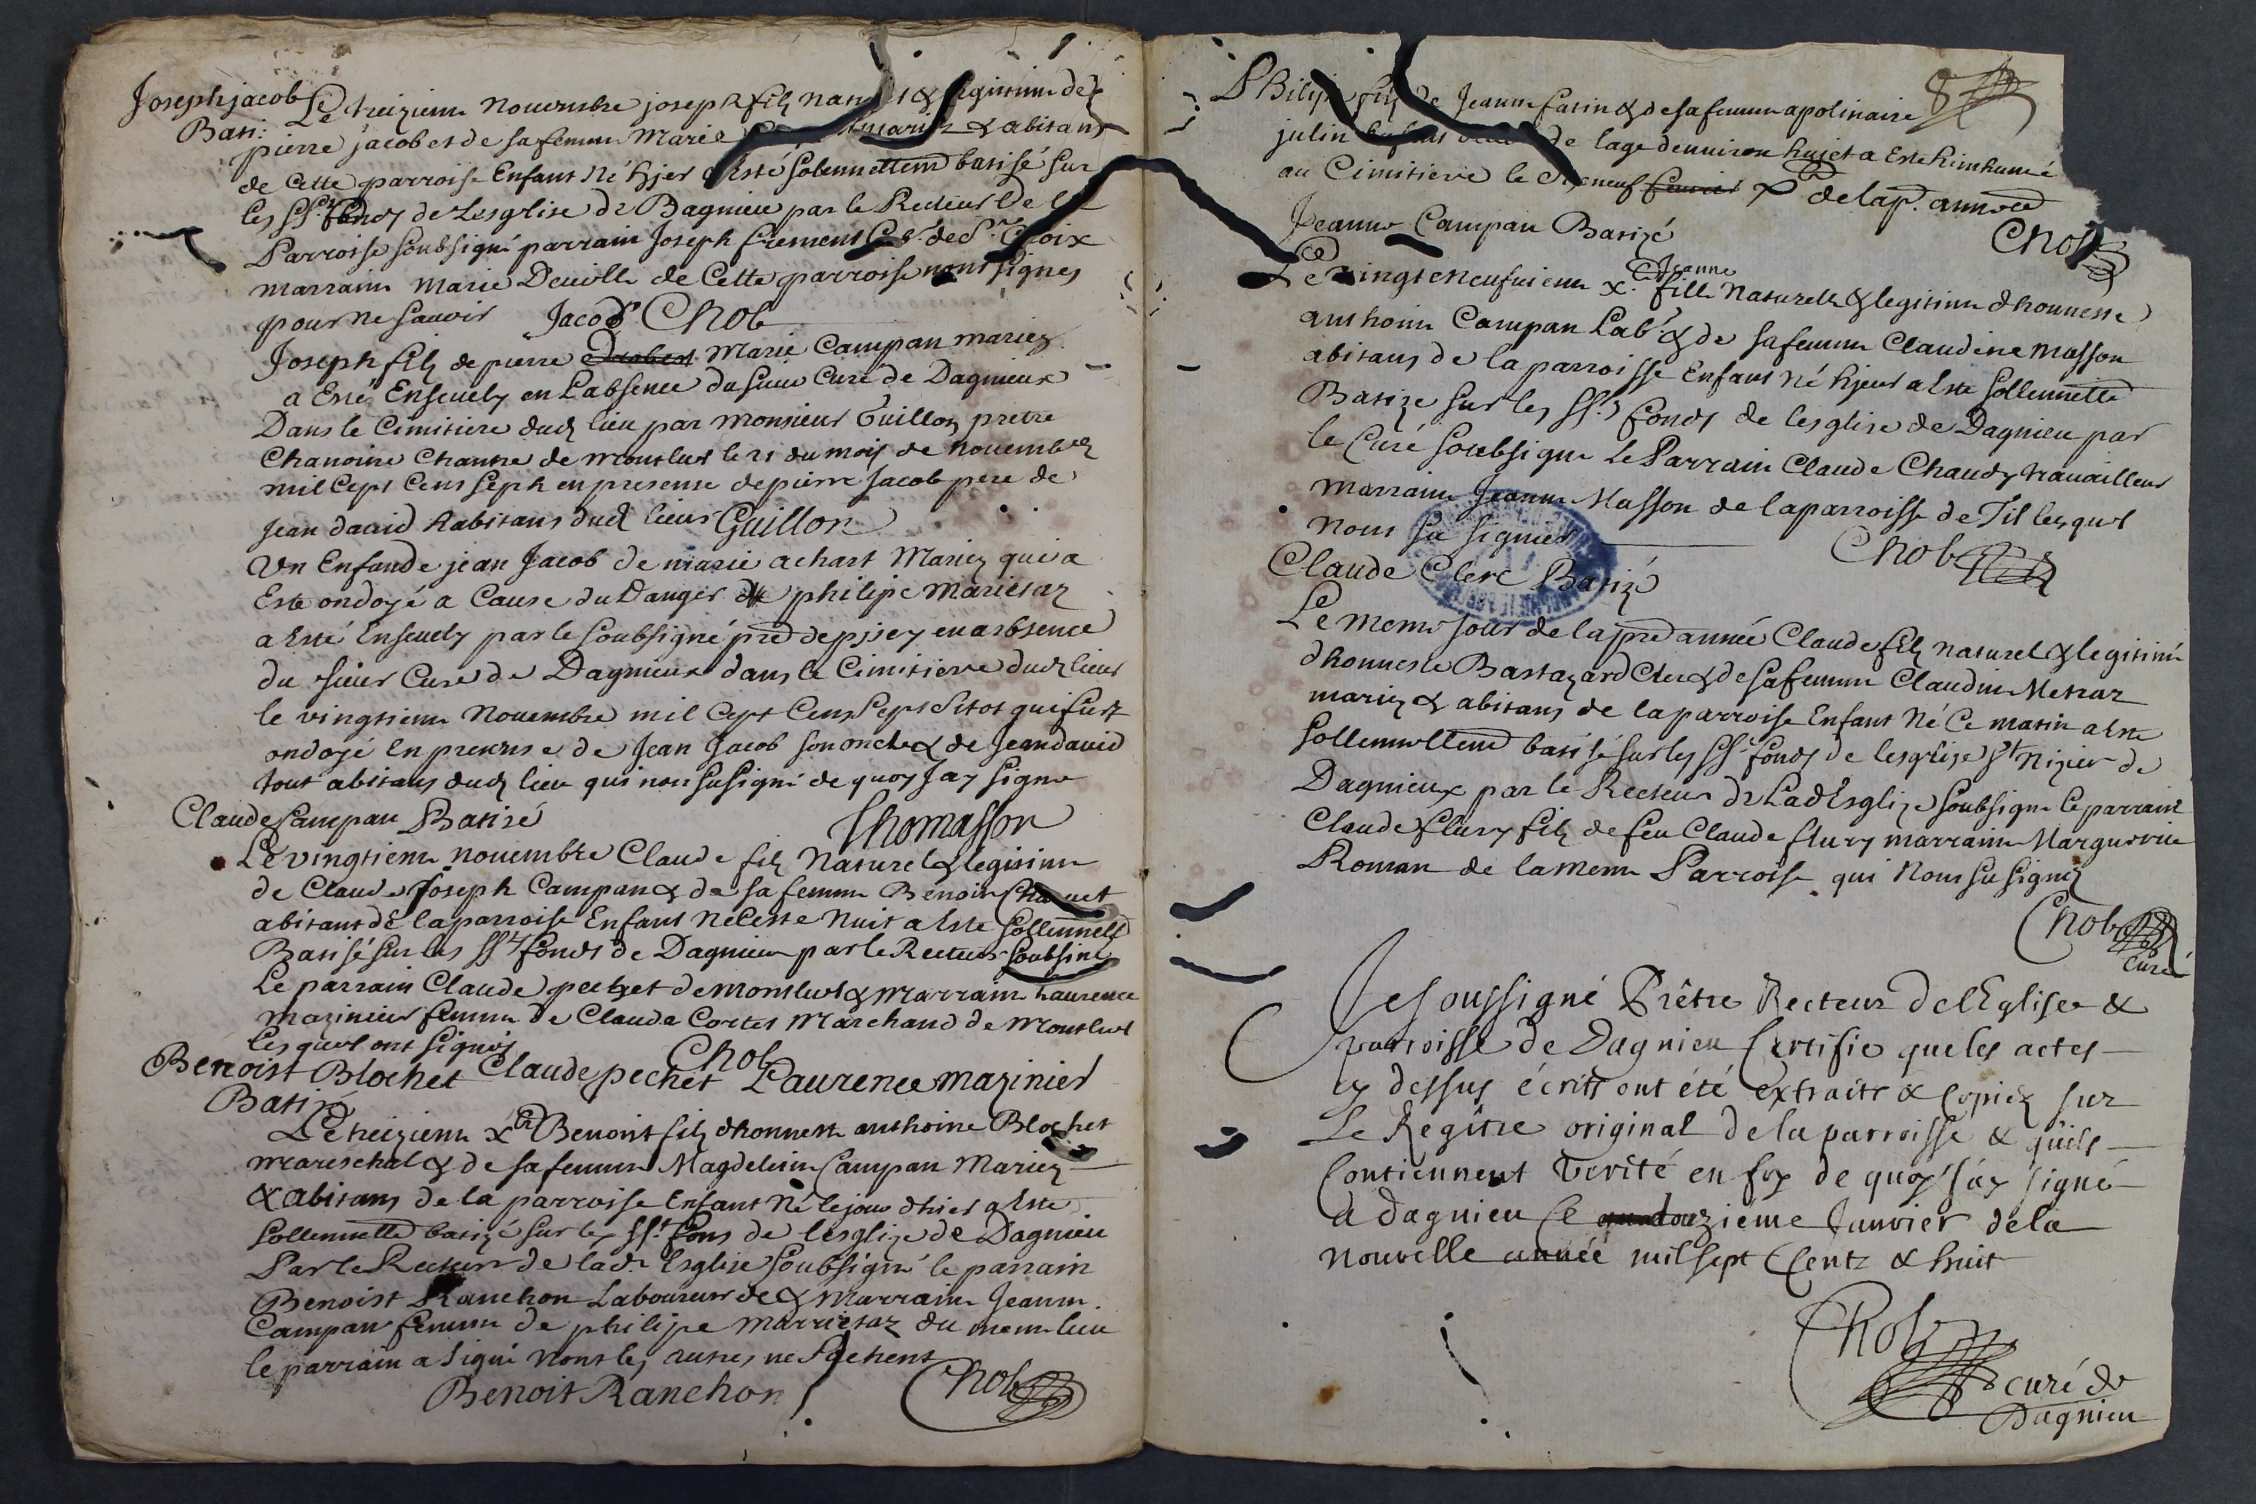 Joseph jacob
Bati:
Le treizieme nouembre joseph filz naturel & legitime de
pierre jacob et de sa femme Marie mariez & abitans
de Cette parroise Enfant né hjer a esté solennellemt batisé sur
les SSts fonds de Lesglise de Dagnieu par le Recteur De la
Parroise soubsigné parrain Joseph frement Lab.r de Ste Croix
marraine Marie Deuille de Cette parroise nont signes
pour ne sauoir Jacob Chob
Joseph filz de pierre Marie Campan mariez
a Esté Enseuely en Labsence du sieur Curé de Dagnieux
Dans le Cimitiere dud lieu par Monsieur Guillon pretre
Chanoine Chantre de Montluel le 21 du mois de nouembre
mil Cept Cens Sept en presense de pierre Jacob pere de
Jean dauid habitans dud lieux Guillon
Un Enfan de jean Jacob de marie achart Mariez qui a
Este ondoyé a Cause du Danger de philipe Marietaz
a Esté Enseuely par le soubsigné pre de pizey en absence
du sieur Curé de Dagnieux dans le Cimitiere dud lieux
le vingtieme Nouembre mil Cept Cens Sept sitot qui fust
ondoyé En presense de Jean Jacob son oncle & de Jean dauid
tout abitans dud lieu qui non su signé de quoy Jay signé
Thomasson
Claude Campan Batisé
Le vingtieme nouembre Claude filz Naturel & legitime
de Claude Joseph Campan & de sa femme Benoite Chanet
abitant de la parroise Enfant né Ceste Nuit a Este Sollennellt
Batisé sur les SSts fonds de Dagnieu par le Recteur soubsiné
Le parrain Claude pechet de montluel & Marraine Laurence
mazinier femme de Claude Cortet Marchand de Montluel
lesquels ont signés
Chob
Claude pechet Laurence mazinier
Benoist Blochet
Batizé
Le treizieme Xbr Benoit filz dhonneste anthoine Blochet
mareschal & de sa femme Magdeleine Campan Mariez
& abitans de la parroise Enfant Né le jour dhier a Este
sollennellt batizé sur les SSts fons de lesglize de Dagnieu
Par le Recteur de lad. Esglise Soubsigné le parrain
Benoist Ranchon Laboureur de & Marraine Jeanne
Campan femme de philipe Marrietaz du mesme lieu
le parrain a signé nont les autres ne sachent
Benoit Ranchon Chob
8
Philipe filz de Jeanne farin & de sa femme apolinaire
julin Enfant de lage denuiron huict a Este hinhumé
au Cimitiere le dixneuf feurier Xbr de lap. année
Chob
Jeanne Campan Batizé
Le vingt neufuieme Xbr. Jeanne fille Naturelle & legitime dhonneste
anthoine Campan Lab.r & de sa femme Claudine Masson
abitans de la parroisse Enfant né hjeur a Este sollennellt
Batize sur les SSts fonds de lesglise de Dagnieu par
le Curé soubsigné Le Parrain Claude Chaudy trauailleur
marraine Jeanne Masson de la parroisse de Til lesquels
nont su signer
Chob
Claude Clerc Batizé
Le meme jour de la pred année Claude filz naturel & legitime
dhonneste Bastazard Clerc & de sa femme Claudine Metraz
mariez & abitans de la parroise Enfant Né Ce matin a Este
sollennellemt batisé sur les SSts fonds de lesglize St nizier de
Dagnieux par le Recteur de Lad Esglize soubsigné le parrain
Claude flury filz de feu Claude flury marraine Marguerite
Roman de la meme Parroise qui Nont su signez
Chob
Curé
Je soussigné Prêtre Recteur de lEglise &
parroisse de Dagnieu Certifie que les actes
cy dessus écrits ont été extraits & copiéz sur
Le Regître original de la parroisse & quils
Contiennent verité en foy de quoy jáy signé
a dagnieu Ce douzieme Januier de la
nouvelle année mil sept Centz & huit
Chob
curé de
Dagnieu